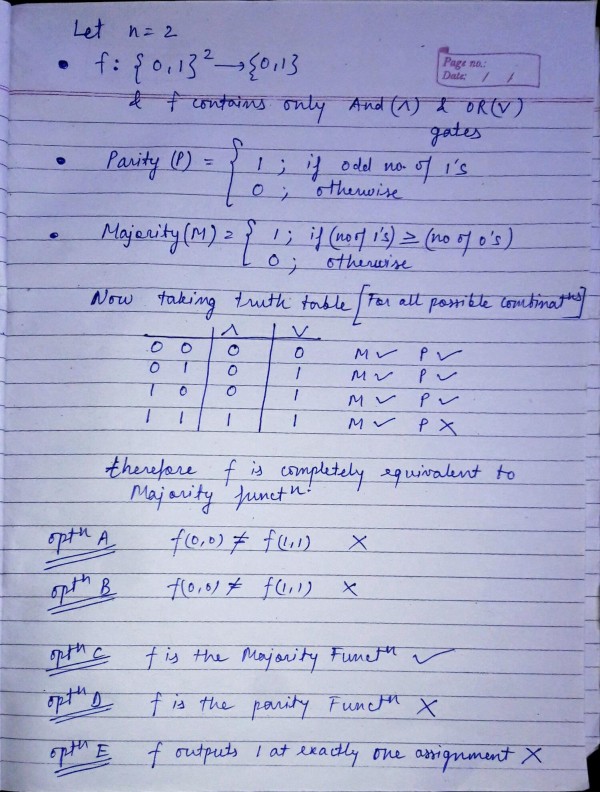 Let n=2
• f: {0,1}² → {0,1}
Page no.:
Date: / /
& f contains only And (∧) & OR(∨)
gates
• Parity (P) = { 1 ; if odd no. of 1's
0 ; otherwise
• Majority (M) = { 1 ; if (no of 1's) ≥ (no of 0's)
0 ; otherwise
Now taking truth table [For all possible combinatⁿˢ]
∧ ∨
0 0 0 0 M ✓ P ✓
0 1 0 1 M ✓ P ✓
1 0 0 1 M ✓ P ✓
1 1 1 1 M ✓ P ✗
therefore f is completely equivalent to
Majority functⁿ.
optⁿ A f(0,0) ≠ f(1,1) ✗
optⁿ B f(0,0) ≠ f(1,1) ✗
optⁿ C f is the Majority Functⁿ ✓
optⁿ D f is the parity Functⁿ ✗
optⁿ E f outputs 1 at exactly one assignment ✗